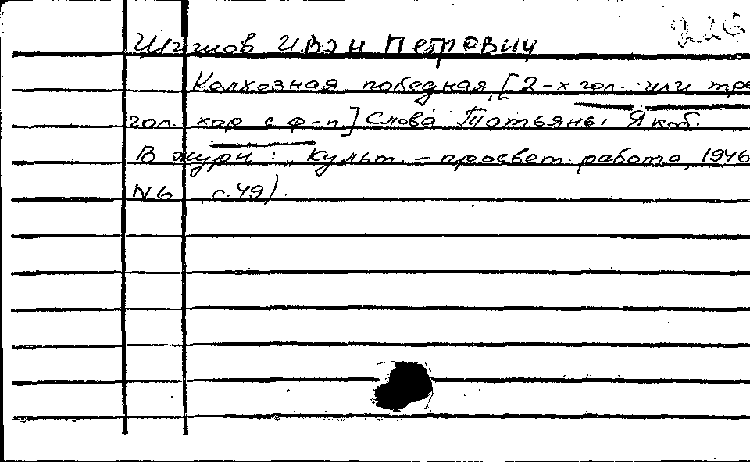 226
Шишов Иван Петрович
Колхозная победная [2-х гол. или трех
гол. хор с ф-п] Слова Татьяны Якоб.
В журн.: Культ.-просвет. работа, 1946
N6 с.49).